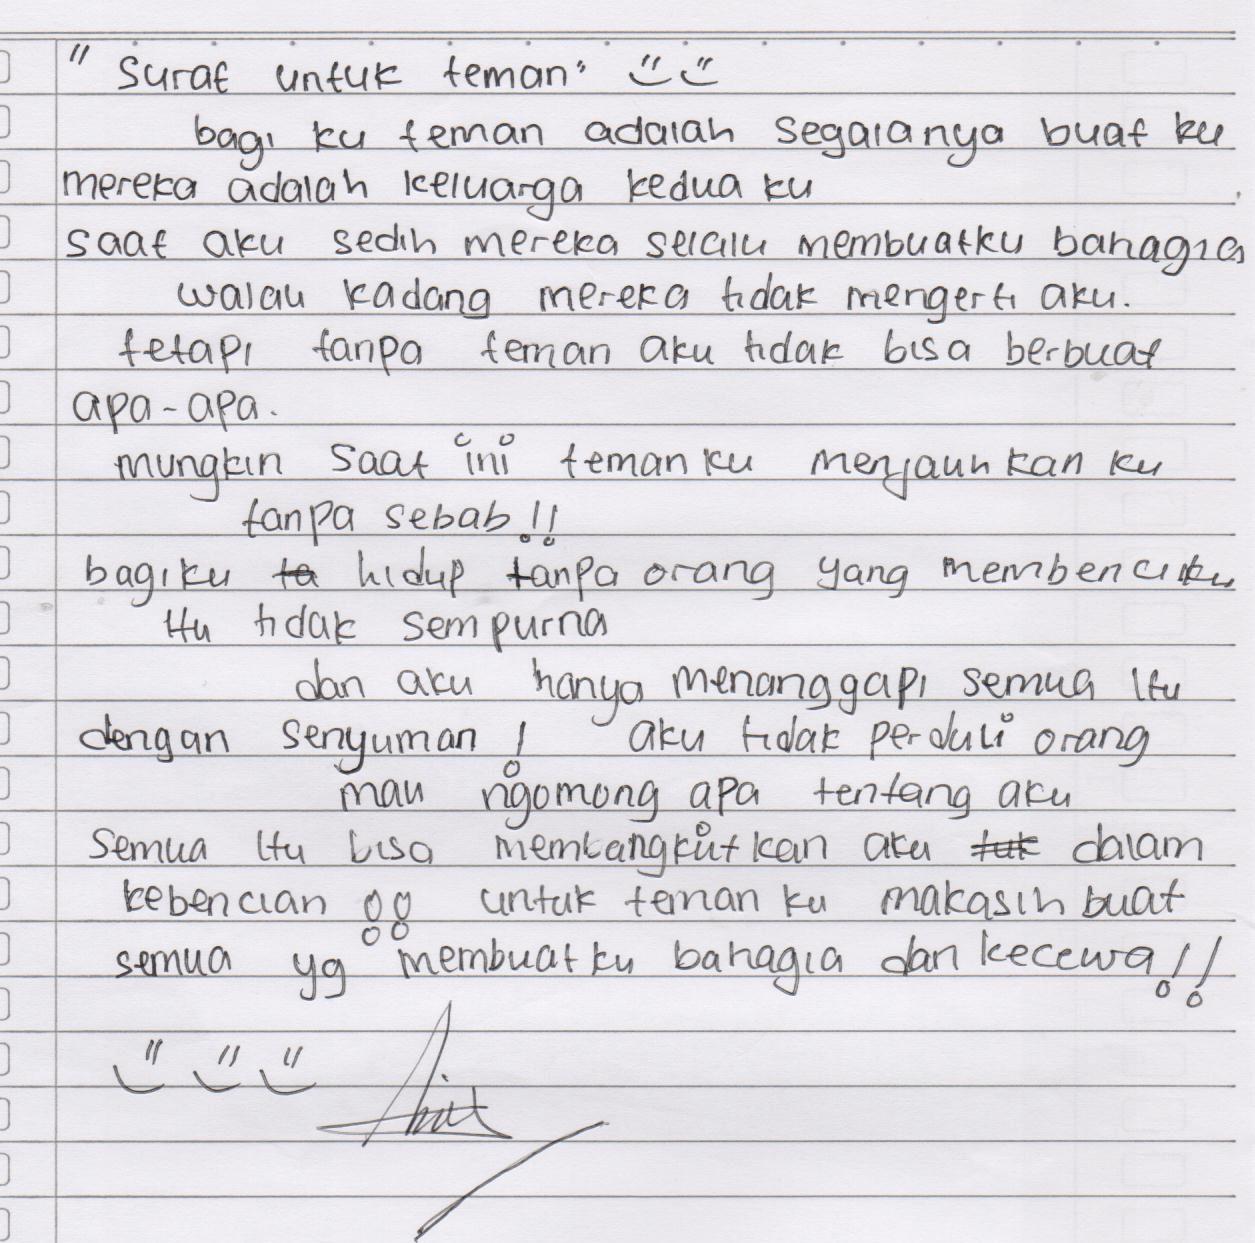 " Surat untuk teman"
bagi ku teman adalah segalanya buat ku
mereka adalah keluarga kedua ku
saat aku sedih mereka selalu membuatku bahagia
walau kadang mereka tidak mengerti aku.
tetapi tanpa teman aku tidak bisa berbuat
apa-apa.
mungkin saat ini teman ku menjauhkan ku
tanpa sebab!!
bagiku ta hidup tanpa orang yang membenciku
itu tidak sempurna
dan aku hanya menanggapi semua itu
dengan senyuman! aku tidak perduli orang
mau ngomong apa tentang aku
semua itu bisa membangkitkan aku tuk dalam
kebencian !! untuk teman ku makasih buat
semua yg membuatku bahagia dan kecewa!!